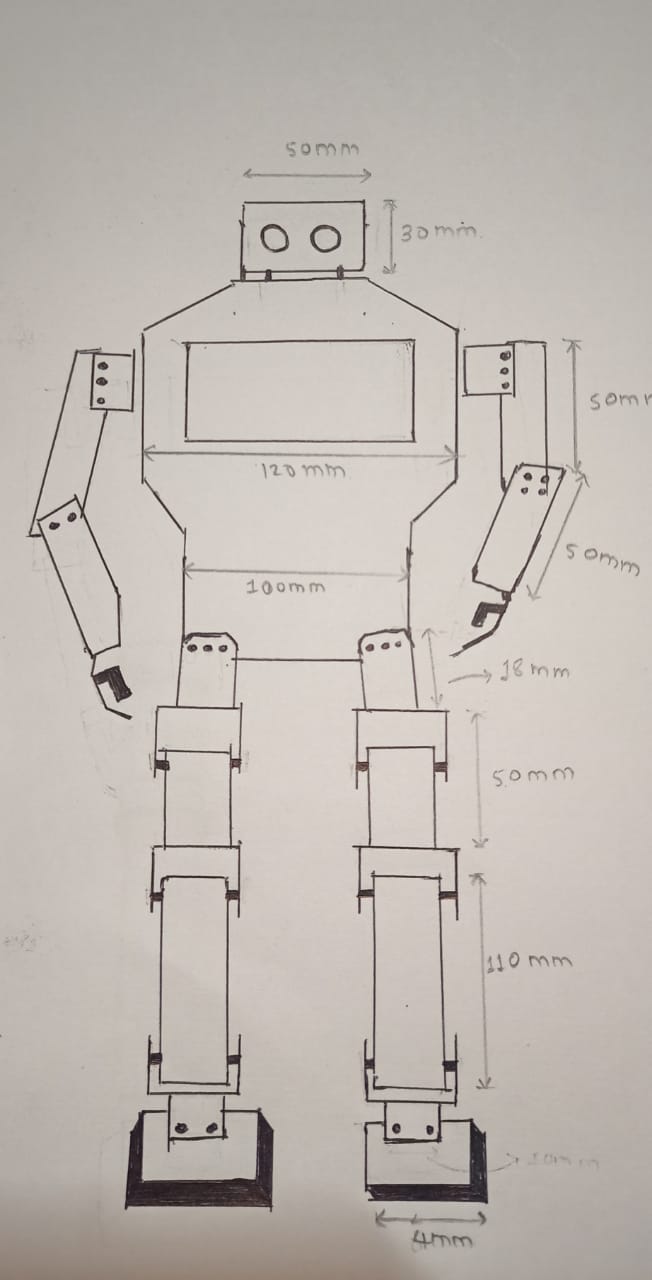 50mm
30mm
50mm
120mm
50mm
100mm
18mm
50mm
110mm
10mm
4mm